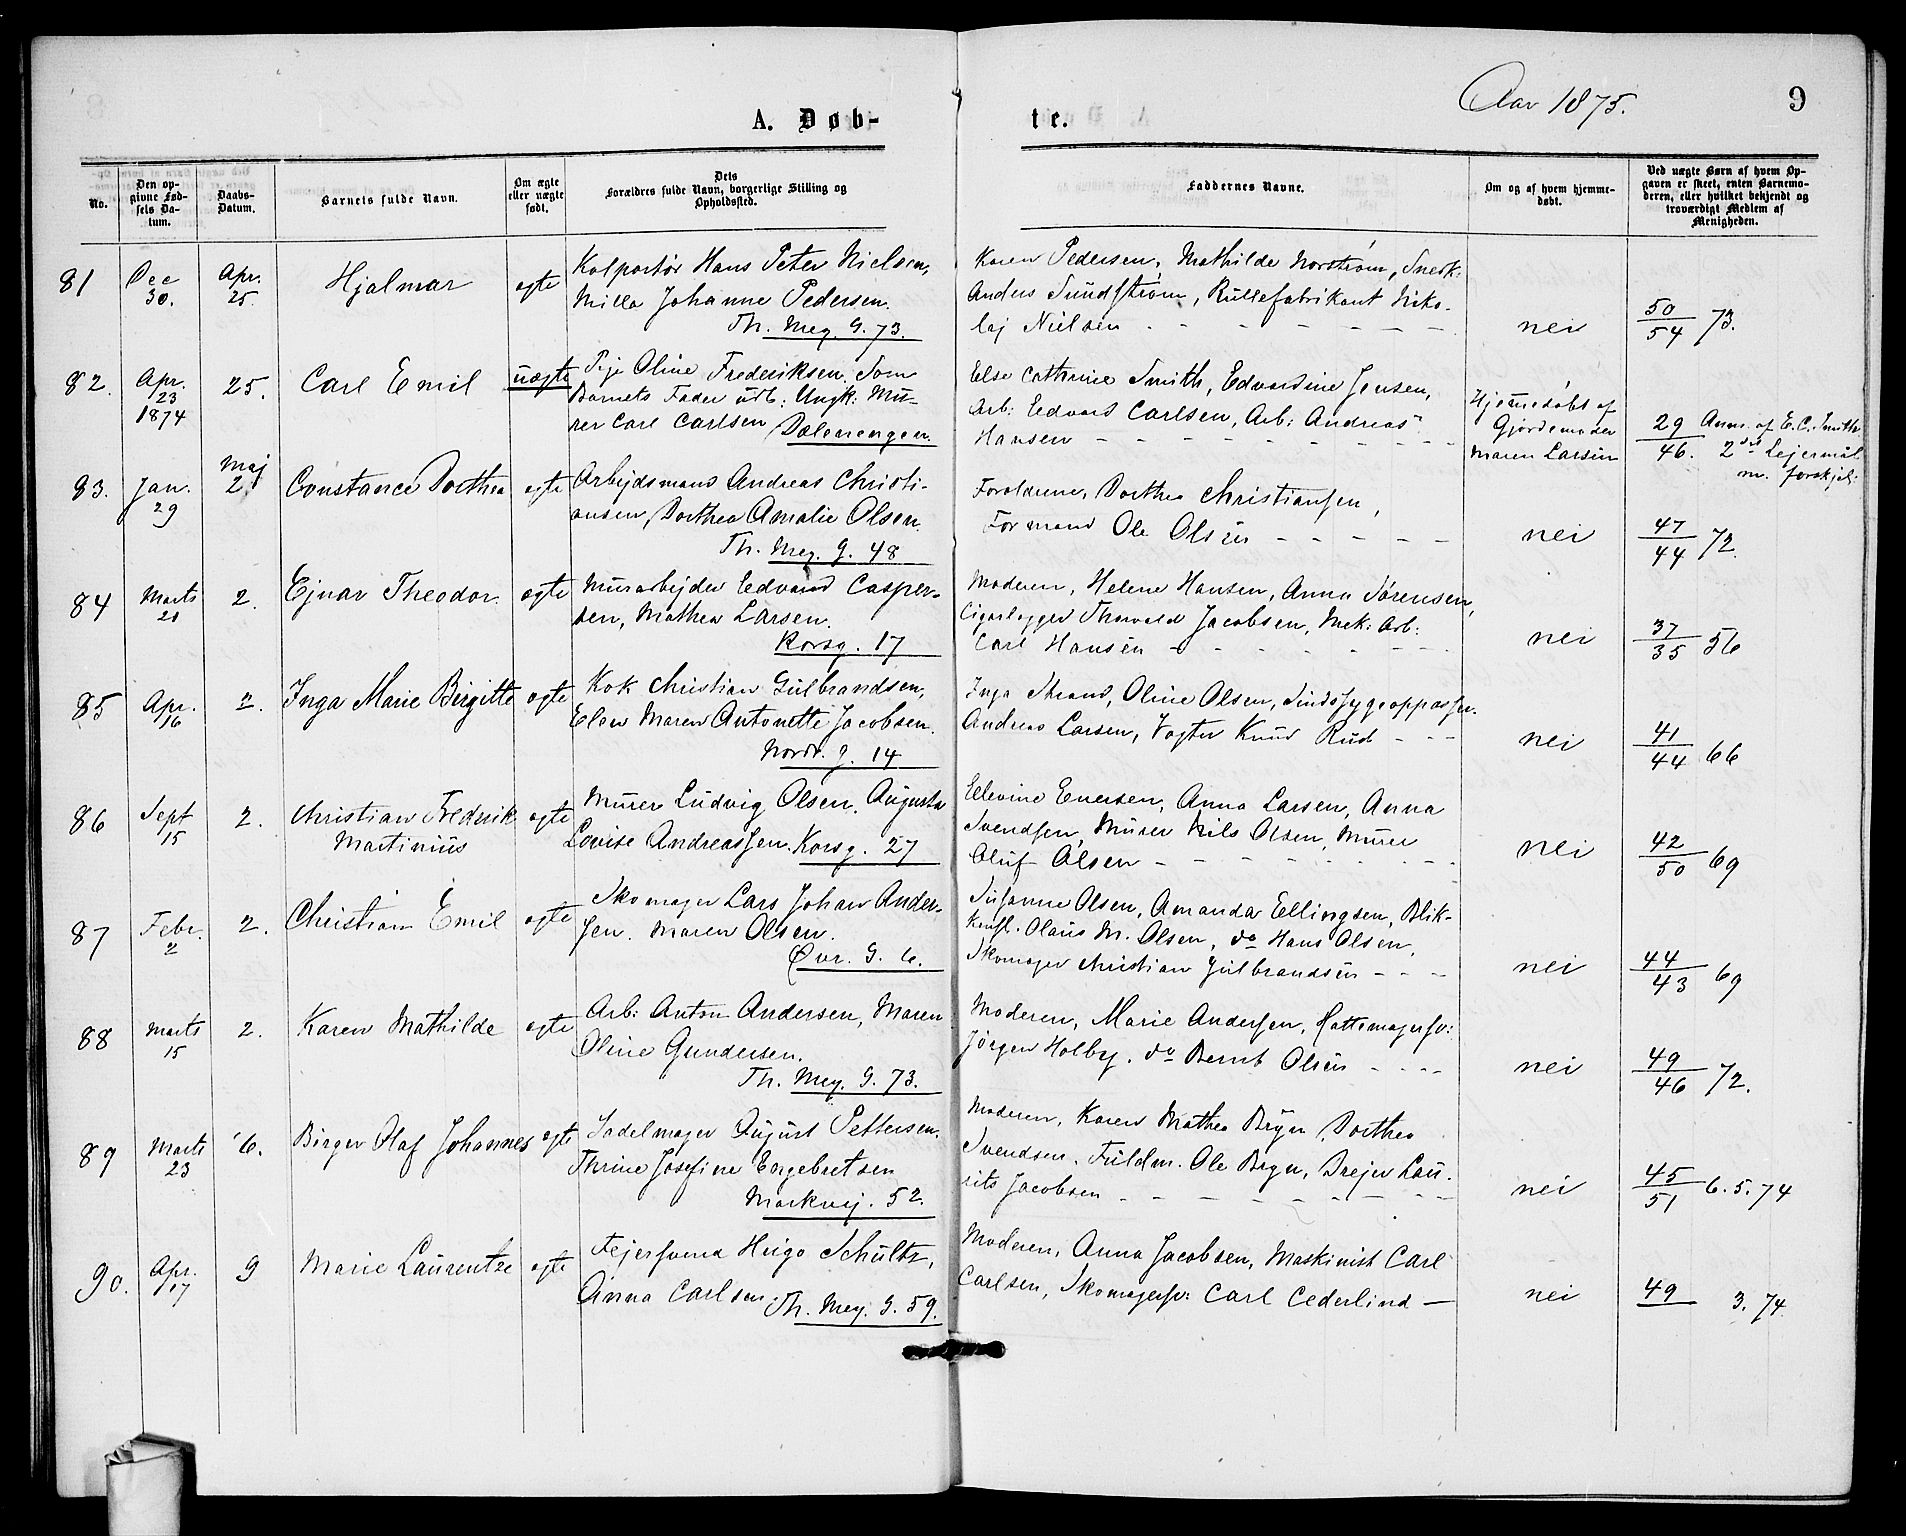 Aar 1875.
9
A. Døb-
te.
No.
Den op-
givne Fød-
sels Da-
tum.
Daabs-
Datum.
Barnets fulde Navn.
Om ægte
eller uægte
født.
Dets
Forældres fulde Navn, borgerlige Stilling og
Opholdssted.
Faddernes Navne.
Om og af hvem hjemme-
døbt.
Ved uægte Børn af hvem Op-
gaven er skeet, enten Barnemo-
deren, eller hvilket bekjendt og
troværdigt Medlem af
Menigheden.
81
Dec
30.
Apr.
25.
Hjalmar
egte
Kolportør Hans Peter Nielsen,
Milla Johanne Pedersen.
Th. Mey. G. 73.
Karen Pedersen, Mathilde Norstrøm, Snedk:
Anders Sundstrøm, Rullefabrikant Niko-
laj Nielsen
nei
50/54 73.
82.
Apr.
23
1874
25.
Carl Emil
uegte
Pige Oline Frederiksen. Som
Barnets Fader udl: Ungk: Mu-
rer Carl Carlsen
Dælenengen.
Else Cathrine Smith, Edvardine Jensen,
Arb: Edvard Carlsen, Arb: Andreas
Hansen
Hjemmedøbt af
Gjordemoder
Maren Larsen
29/46.
Anm. af E. C. Smith
2det Lejermål
m. forskjel:
83.
Jan.
29
Maj
2.
Constance Dorthea
egte
Arbejdsmand Andreas Christi-
ansen, Dorthea Amalie Olsen.
Th. Mey. G. 48
Foreldrene, Dorthea Christiansen,
Formand Ole Olsen
nei
47/44 72.
84
Marts
20
2.
Ejnar Theodor.
egte
Murarbejder Edvard Casper-
sen, Mathea Larsen.
Korsg. 17
Moderen, Helene Hansen, Anna Sørensen,
Cigarlægger Thorvald Jacobsen, Mek: Arb:
Carl Hansen
nei
37/35 56
85
Apr.
16
2.
Inga Marie Birgitte
egte
Kok Christian Gulbrandsen,
Elen Maren Antonette Jacobsen.
Nordr. g. 14
Inga Strand, Oline Olsen, Sindssygeoppasser
Andreas Larsen, Vogter Knud Rud
nei
41/44 66
86
Sept
15
2.
Christian Frederik
Martinius
egte
Murer Ludvig Olsen. Augusta
Lovise Andreassen. Korsg. 27
Ellevine Enersen, Anna Larsen, Anna
Svendsen, Murer Nils Olsen, Murer
Oluf Olsen
nei
42/50 69
87
Febr.
2
2.
Christian Emil
egte
Skomager Lars Johan Ander-
sen. Maren Olsen.
Øvr. G. 6.
Susanne Olsen, Amanda Ellingsen, Blik-
kensl. Olaus M. Olsen, do Hans Olsen,
Skomager Christian Gulbrandsen
nei
44/43 69
88
Marts
15
2.
Karen Mathilde
egte
Arb: Anton Andersen, Maren
Oline Gundersen.
Th. Mey. G. 73.
Moderen, Marie Andersen, Hattemagersv:
Jörgen Holby, do Bernt Olsen
nei
49/46 72.
89
Marts
23
6.
Birger Olaf Johannes
egte
Sadelmager August Pettersen.
Thrine Josefine Engebretsen
Markvej. 52.
Moderen, Karen Mathea Bryn, Dorthea
Svendsen. Fuldm. Ole Bryn, Drejer Lau-
rits Jacobsen
nei
45/51 6. 5. 74
90.
Apr.
17
9
Marie Laurentze
egte
Fejersvend Hugo Schultz,
Anna Carlsen.
Th. Mey. G. 59.
Moderen, Anna Jacobsen, Maskinist Carl
Carlsen, Skomagersv: Carl Cederlind
nei
49 3. 74.